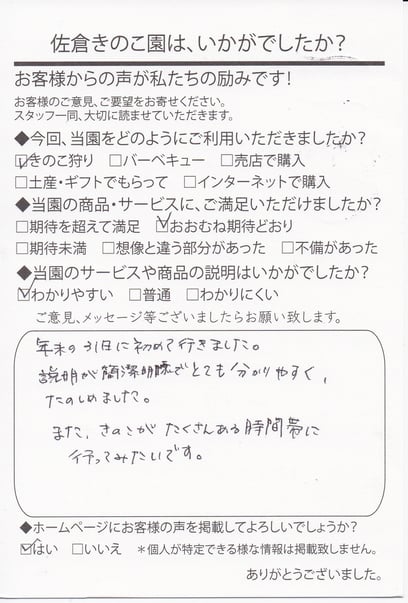 佐倉きのこ園は、いかがでしたか？
お客様からの声が私たちの励みです！
お客様のご意見、ご要望をお寄せください。
スタッフ一同、大切に読ませていただきます。
◆今回、当園をどのようにご利用いただきましたか？
☑きのこ狩り □バーベキュー □売店で購入
□土産・ギフトでもらって □インターネットで購入
◆当園の商品・サービスに、ご満足いただけましたか？
□期待を超えて満足 ☑おおむね期待どおり
□期待未満 □想像と違う部分があった □不備があった
◆当園のサービスや商品の説明はいかがでしたか？
☑わかりやすい □普通 □わかりにくい
ご意見、メッセージ等ございましたらお願い致します。
年末の31日に初めて行きました。
説明が簡潔明瞭でとても分かりやすく、
たのしめました。
また、きのこがたくさんある時間帯に
行ってみたいです。
◆ホームページにお客様の声を掲載してよろしいでしょうか？
☑はい □いいえ ＊個人が特定できる様な情報は掲載致しません。
ありがとうございました。